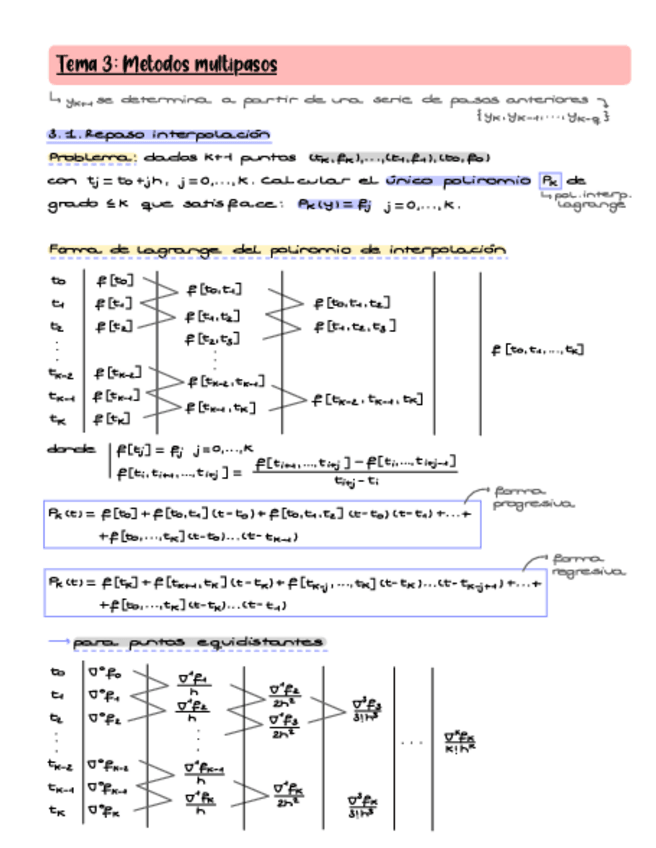 Tema 3: Metodos multipasos
↳ yₖ₊₁ se determina a partir de una serie de pasos anteriores
{yₖ, yₖ₋₁, ..., yₖ₋q}
3.1. Repaso interpolación
Problema: dados k+1 puntos (tₖ, fₖ), ..., (t₁, f₁), (t₀, f₀)
con tj = t₀ + jh, j=0,...,k. Calcular el único polinomio Pₖ de
↳ pol. interp. lagrange
grado ≤ k que satisface: Pₖ(y) = fj j=0,...,k.
Forma de lagrange del polinomio de interpolación
t₀ f[t₀]
f[t₀,t₁]
t₁ f[t₁] f[t₀,t₁,t₂]
f[t₁,t₂]
t₂ f[t₂] f[t₁,t₂,t₃]
f[t₂,t₃]
⋮ ⋮ f[t₀,t₁,...,tₖ]
tₖ₋₂ f[tₖ₋₂]
f[tₖ₋₂,tₖ₋₁]
tₖ₋₁ f[tₖ₋₁] f[tₖ₋₂,tₖ₋₁,tₖ]
f[tₖ₋₁,tₖ]
tₖ f[tₖ]
donde f[tj] = fj j=0,...,k
f[ti,ti+1,...,ti+j] = (f[ti+1,...,ti+j] - f[ti,...,ti+j-1]) / (ti+j - ti)
forma progresiva
Pₖ(t) = f[t₀] + f[t₀,t₁](t-t₀) + f[t₀,t₁,t₂](t-t₀)(t-t₁) + ... +
+ f[t₀,...,tₖ](t-t₀)...(t-tₖ₋₁)
forma regresiva
Pₖ(t) = f[tₖ] + f[tₖ₊₁,tₖ](t-tₖ) + f[tₖ₋j,...,tₖ](t-tₖ)...(t-tₖ₋j₊₁) + ... +
+ f[t₀,...,tₖ](t-tₖ)...(t-t₁)
→ para puntos equidistantes
t₀ ∇⁰f₀
∇¹f₁/h
t₁ ∇⁰f₁ ∇¹f₂/2h²
∇¹f₂/h ∇³f₃/3!h³
t₂ ∇⁰f₂ ∇¹f₃/2h²
⋮ ⋮ ... ∇ᵏfₖ/k!hᵏ
tₖ₋₂ ∇⁰fₖ₋₂
∇¹fₖ₋₁/h
tₖ₋₁ ∇⁰fₖ₋₁ ∇¹fₖ/2h²
∇¹fₖ/h ∇³fₖ/3!h³
tₖ ∇⁰fₖ